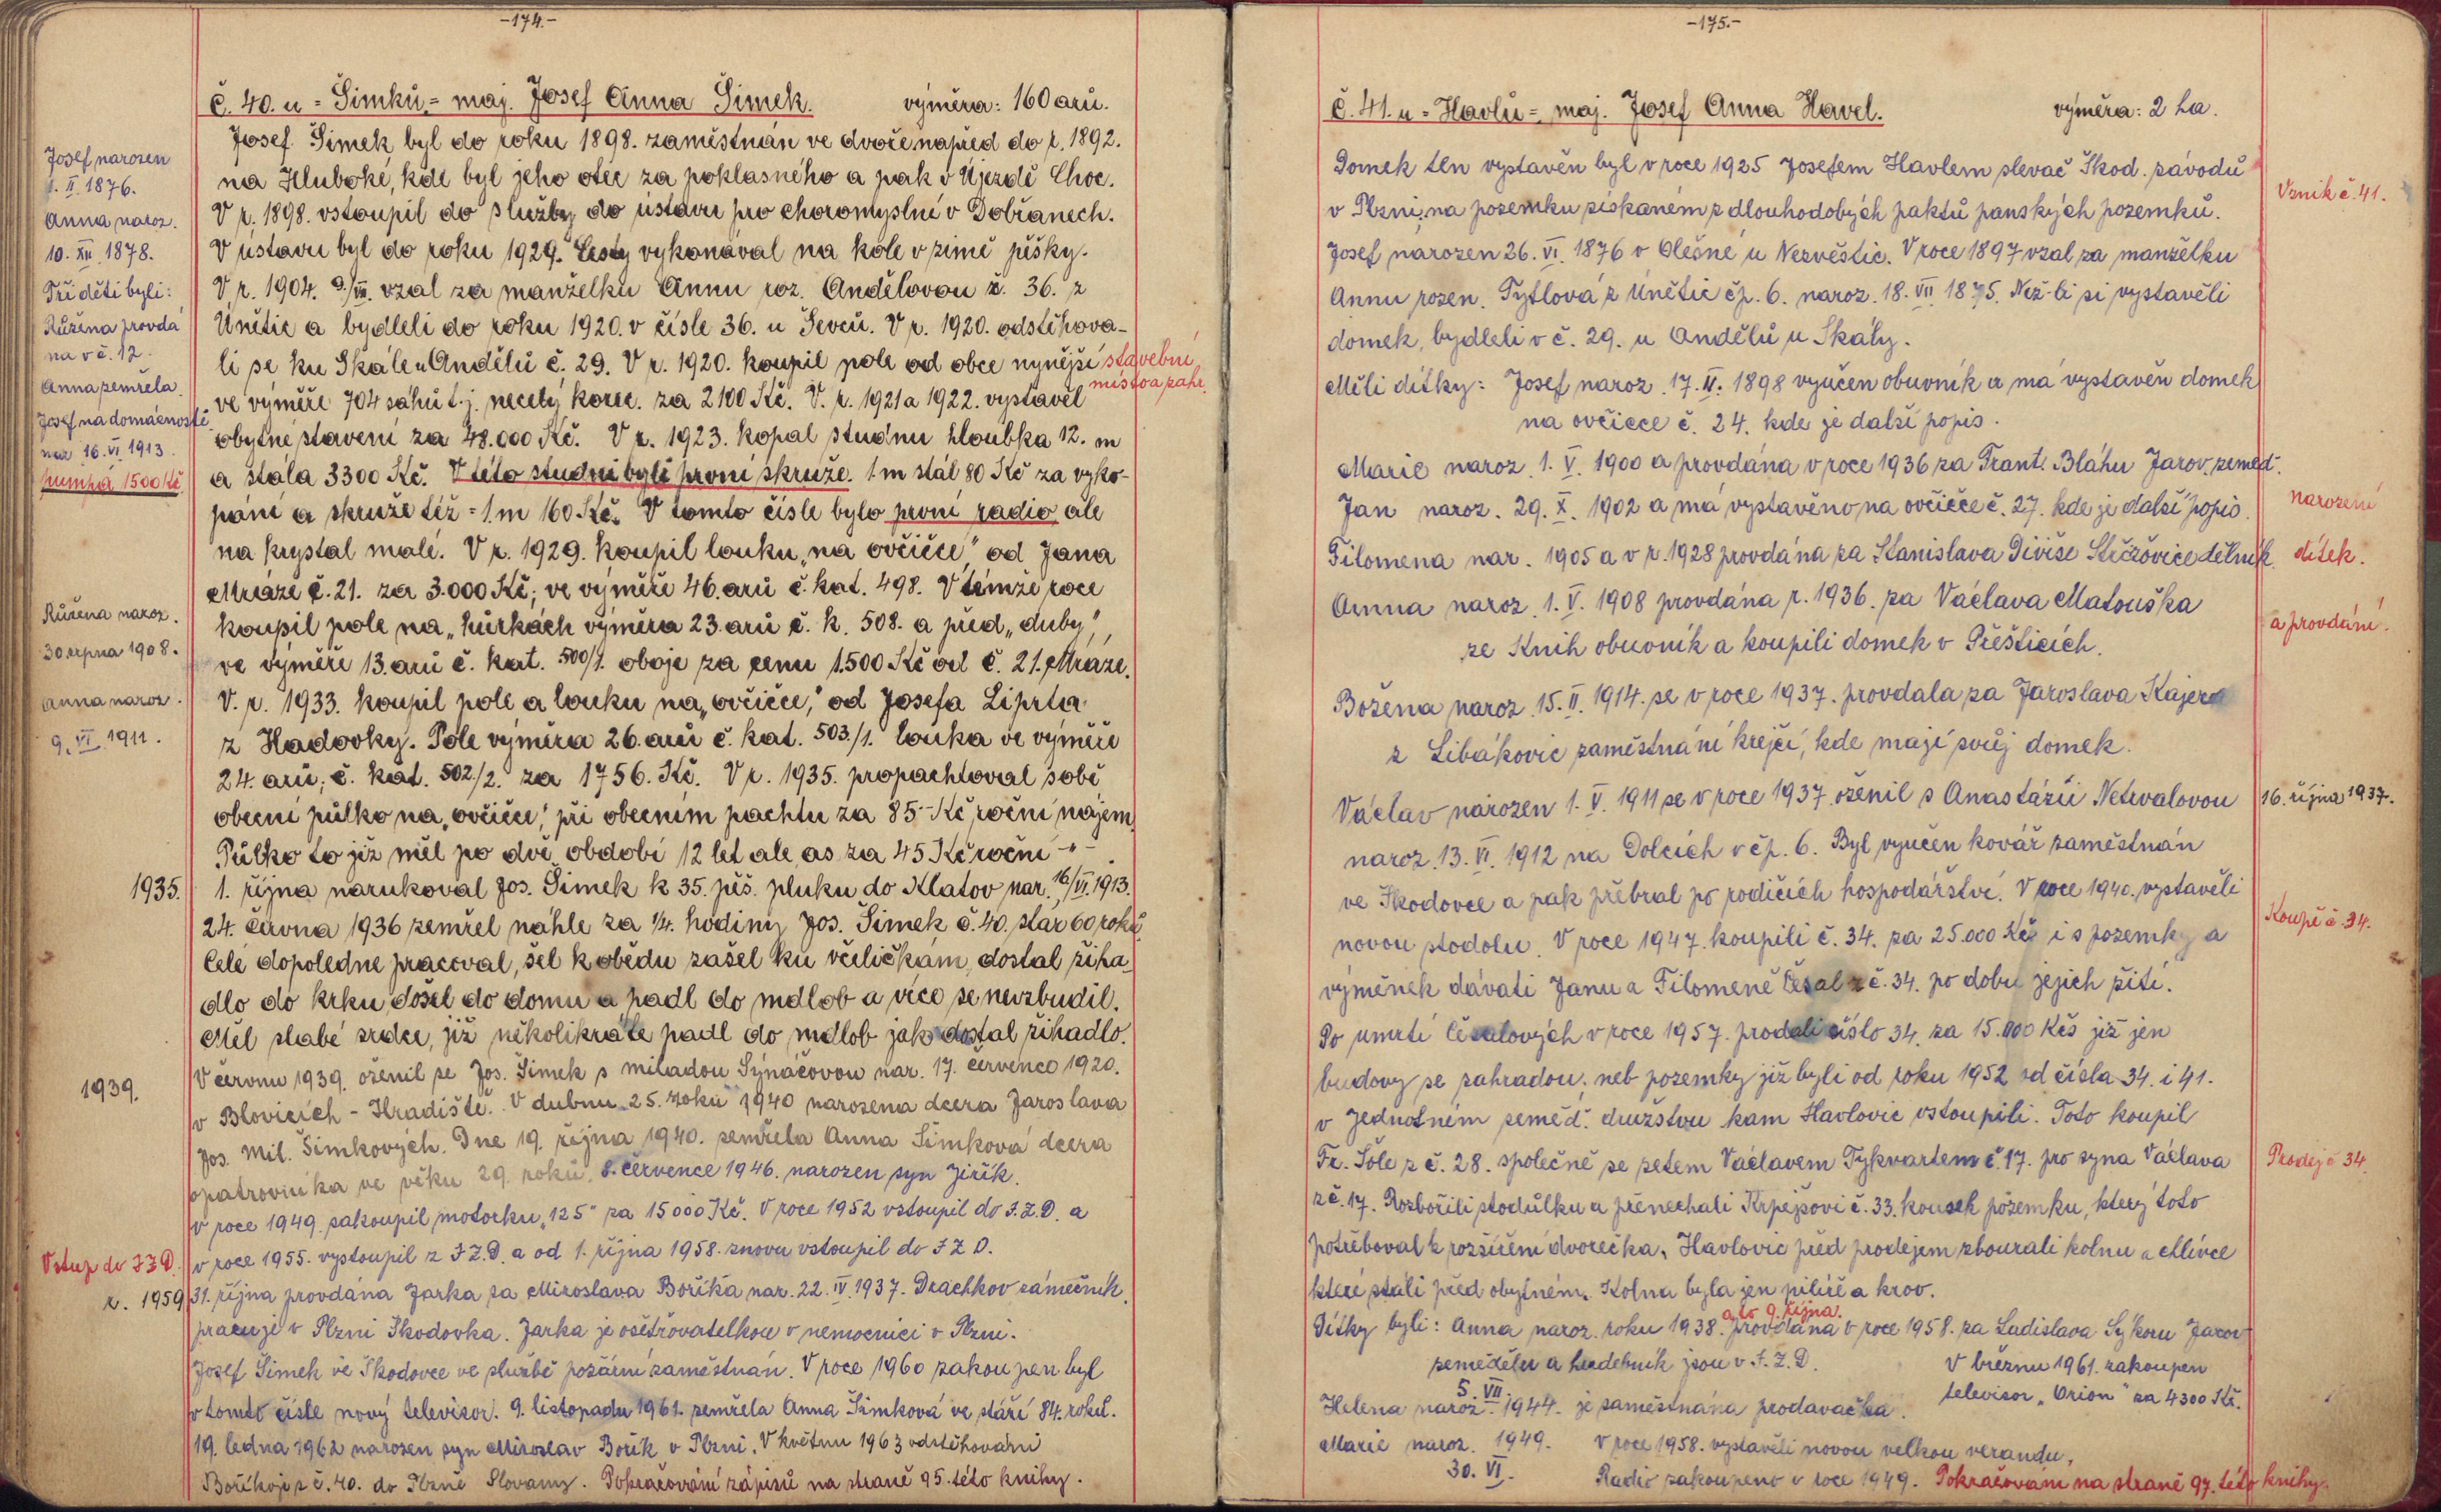 -174.-
Č. 40. u = Šimků = maj. Josef Anna Šimek. výměra: 160 arů.
Josef Šimek byl do roku 1898. zaměstnán ve dvoře napřed do r. 1892.
na Hluboké, kde byl jeho otec za poklasného a pak v Újezdě Choc.
V r. 1898. vstoupil do služby do ústavu pro choromyslné v Dobřanech.
V ústavu byl do roku 1929. Cesty vykonával na kole v zimě pěšky.
V r. 1904. 9./VII. vzal za manželku Annu roz. Andělovou č. 36. z
Únětic a bydleli do roku 1920. v čísle 36. u Ševců. V r. 1920. odstěhova-
li se ku Skále u Andělů č. 29. V r. 1920. koupil pole od obce nynější stavební
místo a zahr.
ve výměře 704 sáhů t.j. necelý korec. za 2100 Kč. V. r. 1921 a 1922. vystavěl
obytné stavení za 48.000 Kč. V r. 1923. kopal studnu hloubka 12. m
a stála 3300 Kč. V této studni byli první skruže. 1 m stál 80 Kč za vyko-
pání a skruže též = 1. m 160 Kč. V tomto čísle bylo první radio ale
na krystal malé. V r. 1929. koupil louku „na ovčičče" od Jana
Mráze č. 21. za 3.000 Kč; ve výměře 46. arů č. kat. 498. V témže roce
koupil pole na „hůrkách výměra 23. arů č. k. 508. a před „duby",
ve výměře 13. arů č. kat. 500/1. oboje za cenu 1.500 Kč od č. 21. Mráze.
V. r. 1933. koupil pole a louku na „ovčičce," od Josefa Liprta
z Hadovky. Pole výměra 26. arů č. kat. 503./1. louka ve výměře
24. arů; č. kat. 502./2. za 1756. Kč. V r. 1935. propachtoval sobě
obecní půlko na „ovčičce," při obecním pachtu za 85.- Kč roční nájem.
Půlko to již měl po dvě období 12 let ale as za 45 Kč roční -"-
1935. 1. října narukoval Jos. Šimek k 35. pěš. pluku do Klatov nar. 16/VI. 1913.
24. června 1936 zemřel náhle za 1/4. hodiny Jos. Šimek č. 40. stár 60 roků.
Celé dopoledne pracoval, šel k obědu zašel ku včeličkám, dostal žiha-
dlo do krku, došel do domu a padl do mdlob a více se nevzbudil.
Měl slabé srdce, již několikráte padl do mdlob jak dostal žihadlo.
1939. V červnu 1939. oženil se Jos. Šimek s miladou Synáčovou nar. 17. července 1920.
v Blovicích - Hradiště. V dubnu 25. roku 1940 narozena dcera Jaroslava
Jos. Mil. Šimkových. Dne 19. října 1940. zemřela Anna Šimková dcera
opatrovnika ve věku 29 roků. 8. července 1946. narozen syn Jiřík.
v roce 1949. zakoupil motorku „125" za 15000 Kč. V roce 1952 vstoupil do J.Z.D. a
Vstup do JZD. v roce 1955. vystoupil z J.Z.D. a od 1. října 1958. znovu vstoupil do J Z D.
r. 1959 31. října provdána Jarka za Miroslava Boříka nar. 22. IV. 1937. Drachkov zámečník
pracuje v Plzni Škodovka. Jarka je ošetřovatelkou v nemocnici v Plzni.
Josef Šimek ve Škodovce ve službě požární zaměstnán. V roce 1960 zakoupen byl
v tomto čísle nový televisor. 9. listopadu 1961. zemřela Anna Šimková ve stáří 84. roků.
19. ledna 1962 narozen syn Miroslav Bořík v Plzni. V květnu 1963 odstěhováni
Boříkoji z č. 40. do Plzně Slovany. Pokračování zápisů na straně 95. této knihy.
Josef narozen
1. II. 1876.
Anna naroz.
10. XII. 1878.
Tři děti byli:
Růžena provdá
na v č. 12.
Anna zemřela.
Josef na domácnosti
nar 16. VI. 1913.
pumpa 1500 Kč.
Růžena naroz.
30 srpna 1908.
Anna naroz.
9. VI 1911.
-175.-
Č. 41. u = Havlů = maj. Josef Anna Havel. výměra: 2 ha.
Domek ten vystavěn byl v roce 1925 Josefem Havlem slevač Škod. závodů
v Plzni, na pozemku získaném z dlouhodobých paktů panských pozemků.
Vznik č. 41.
Josef narozen 26. VI. 1876 v Olešné u Nezvěstic. V roce 1897 vzal za manželku
Annu rozen. Tytlová z Únětic čp. 6. naroz. 18. VII 1875. Než-li si vystavěli
domek, bydleli v č. 29. u Andělů u Skály.
Měli dítky: Josef naroz. 17. II. 1898 vyučen obuvník a má vystavěn domek
na ovčičce č. 24. kde je další popis.
Marie naroz. 1. V. 1900 a provdána v roce 1936 za Frant. Bláhu Jarov. zeměd.
Jan naroz. 29. X. 1902 a má vystavěno na ovčičče č. 27. kde je další popis. narození
Filomena nar. 1905 a v r. 1928 provdána za Stanislava Diviše Strčžovice dělník. dítek.
Anna naroz. 1. V. 1908 provdána r. 1936. za Václava Matouška a provdání.
ze Knih obuvník a koupili domek v Přešticích.
Božena naroz. 15. II. 1914. se v roce 1937. provdala za Jaroslava Kajera
z Libákovic zaměstnání krejčí, kde mají svůj domek.
Václav narozen 1. V. 1911 se v roce 1937 oženil s Anastázií Netvalovou 16. října 1937.
naroz. 13. VI. 1912 na Dolcích v čp. 6. Byl vyučen kovář zaměstnán
ve Škodovce a pak přebral po rodičích hospodářství. V roce 1940. vystavěli
novou stodolu. V roce 1947. koupili č. 34. za 25.000 Kčs i s pozemky a Koupě č. 34.
výměnek dávati Janu a Filomeně Česal z č. 34. po dobu jejich žití.
Po úmrtí Česalových v roce 1957. prodali číslo 34. za 15.000 Kčs již jen
budovy se zahradou, neb pozemky již byli od roku 1952 od čísla 34. i 41.
v Jednotném zeměd. družstvu kam Havlovic vstoupili. Toto koupil
Fr. Šole z č. 28. společně se zetem Václavem Tykvartem č. 17. pro syna Václava Prodej č 34.
z č. 17. Rozbořili stodůlku a přenechali Krpejšovi č. 33. kousek pozemku, který toto
potřeboval k rozšíření dvorečka. Havlovic před prodejem zbourali kolnu a chlívce
které stáli před obytném. Kolna byla jen pilíře a krov.
a to 9. října.
Dítky byli: Anna naroz. roku 1938. provdána v roce 1958. za Ladislava Sýkoru Jarov
zemědělec a hudebník jsou v J.Z.D. V březnu 1961. zakoupen
televisor „Orion" za 4300 Kč.
5. VII
Helena naroz. 1944. je zaměstnána prodavačka.
Marie naroz. 1949. V roce 1958. vystavěli novou velkou verandu,
30. VI. Radio zakoupeno v roce 1949. Pokračování na straně 97. této knihy.